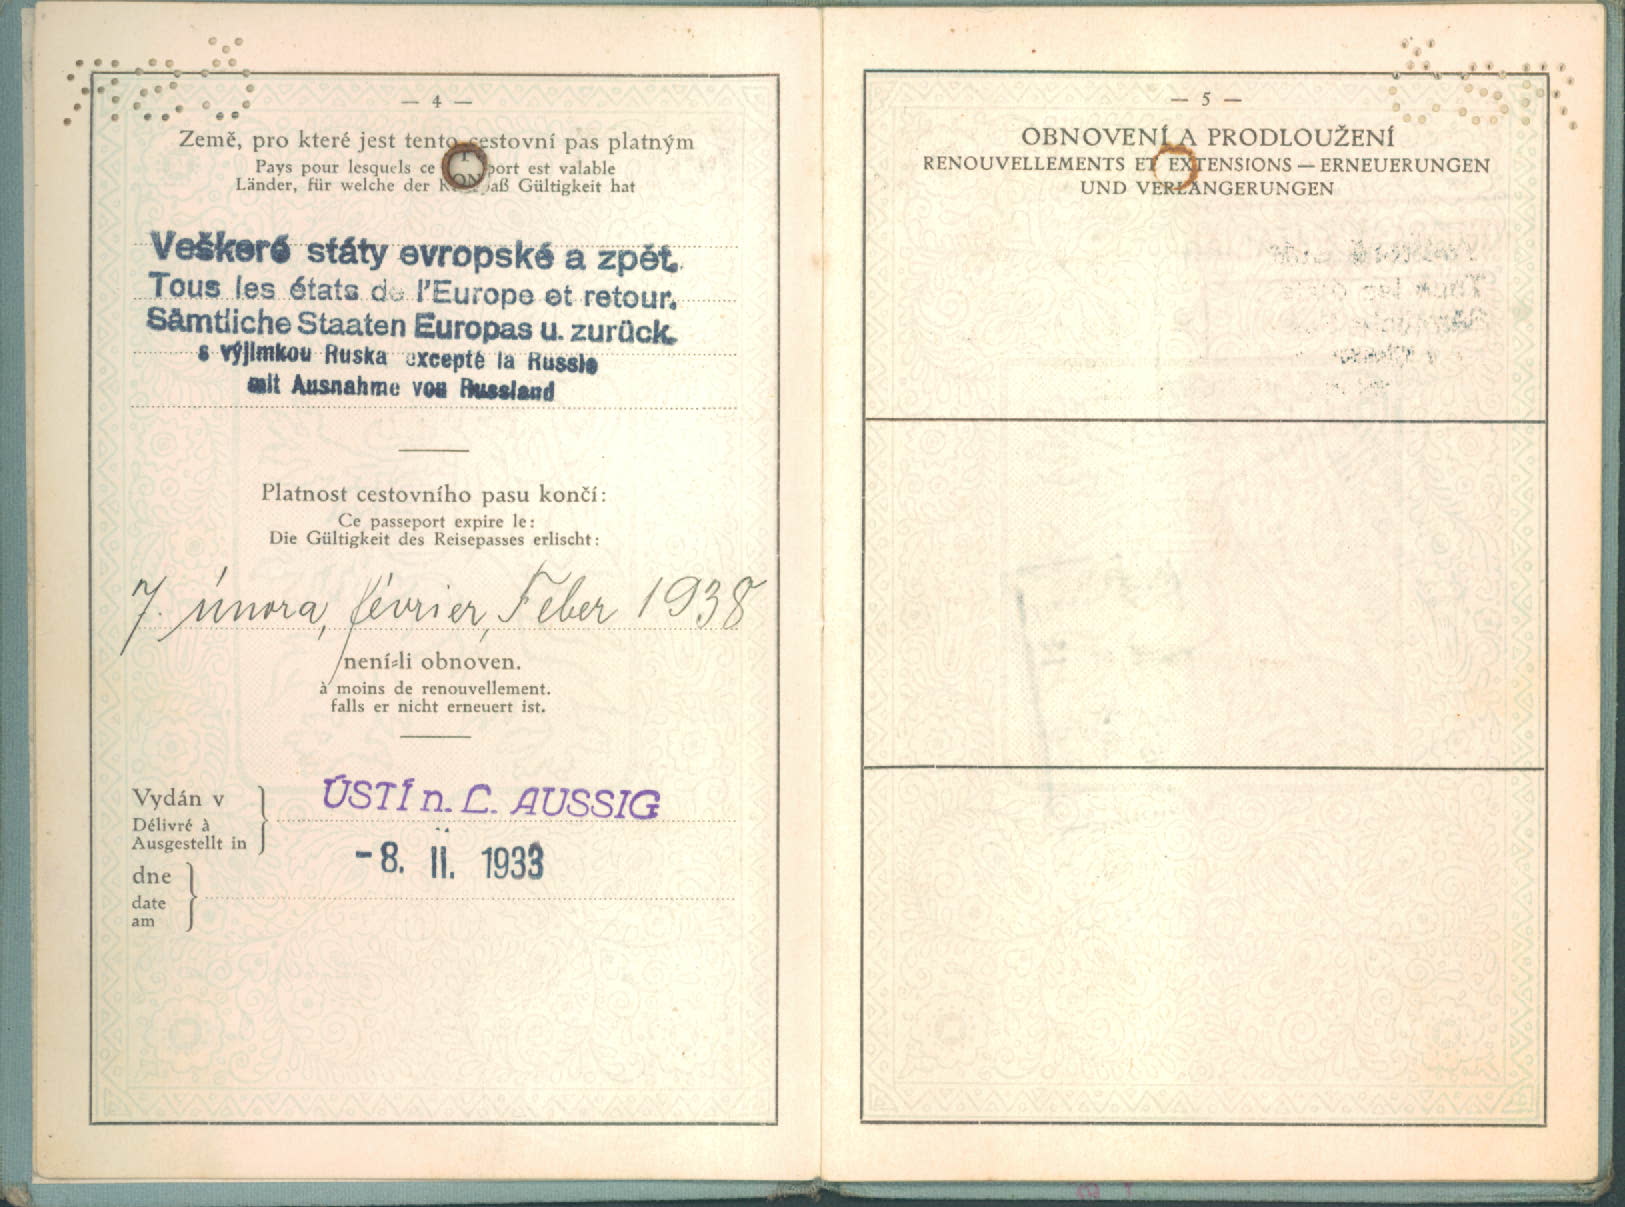 — 4 —
Země, pro které jest tento cestovní pas platným
Pays pour lesquels ce port est valable
Länder, für welche der paß Gültigkeit hat
Veškeré státy evropské a zpět.
Tous les états de l'Europe et retour.
Sämtliche Staaten Europas u. zurück.
s výjimkou Ruska excepté la Russie
mit Ausnahme von Russland
Platnost cestovního pasu končí:
Ce passeport expire le:
Die Gültigkeit des Reisepasses erlischt:
7. února, février, Feber 1938
není-li obnoven.
à moins de renouvellement.
falls er nicht erneuert ist.
Vydán v
Délivré à
Ausgestellt in
ÚSTÍ n. L. AUSSIG
-8. II. 1933
dne
date
am
— 5 —
OBNOVENÍ A PRODLOUŽENÍ
RENOUVELLEMENTS ET EXTENSIONS — ERNEUERUNGEN
UND VERLÄNGERUNGEN